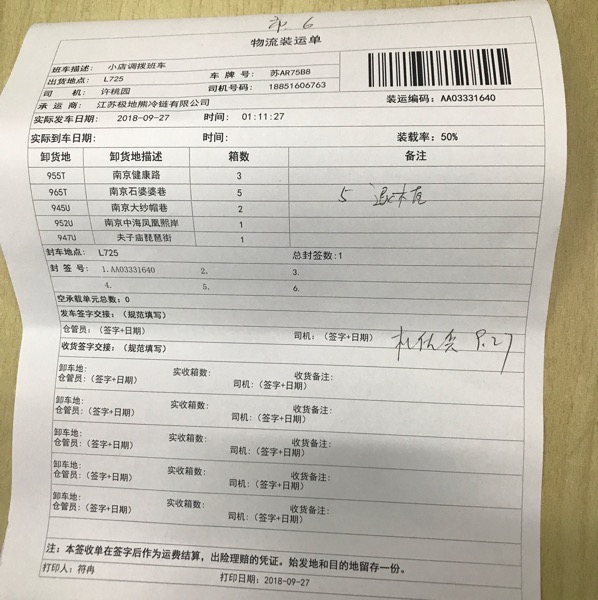 物流装运单
班车描述: 小店调拨班车
出货地点: L725 车 牌 号: 苏AR75B8
司 机: 许桃园 司机号码: 18851606763
承 运 商: 江苏极地熊冷链有限公司 装运编码: AA03331640
实际发车日期: 2018-09-27 时间: 01:11:27
实际到车日期: 时间: 装载率: 50%
卸货地 卸货地描述 箱数 备注
955T 南京健康路 3
965T 南京石婆婆巷 5 5
945U 南京大纱帽巷 2
952U 南京中海凤凰熙岸 1
947U 夫子庙琵琶街 1
封车地点: L725 总封签数:1
封 签 号: 1.AA03331640 2. 3.
4. 5. 6.
空承载单元总数: 0
发车签字交接: (规范填写)
仓管员: (签字+日期) 司机: (签字+日期) 9.27
收货签字交接: (规范填写)
卸车地: 实收箱数: 收货备注:
仓管员: (签字+日期) 司机: (签字+日期)
卸车地: 实收箱数: 收货备注:
仓管员: (签字+日期) 司机: (签字+日期)
卸车地: 实收箱数: 收货备注:
仓管员: (签字+日期) 司机: (签字+日期)
卸车地: 实收箱数: 收货备注:
仓管员: (签字+日期) 司机: (签字+日期)
卸车地: 实收箱数: 收货备注:
仓管员: (签字+日期) 司机: (签字+日期)
注: 本签收单在签字后作为运费结算, 出险理赔的凭证。始发地和目的地留存一份。
打印人: 符冉 打印日期: 2018-09-27